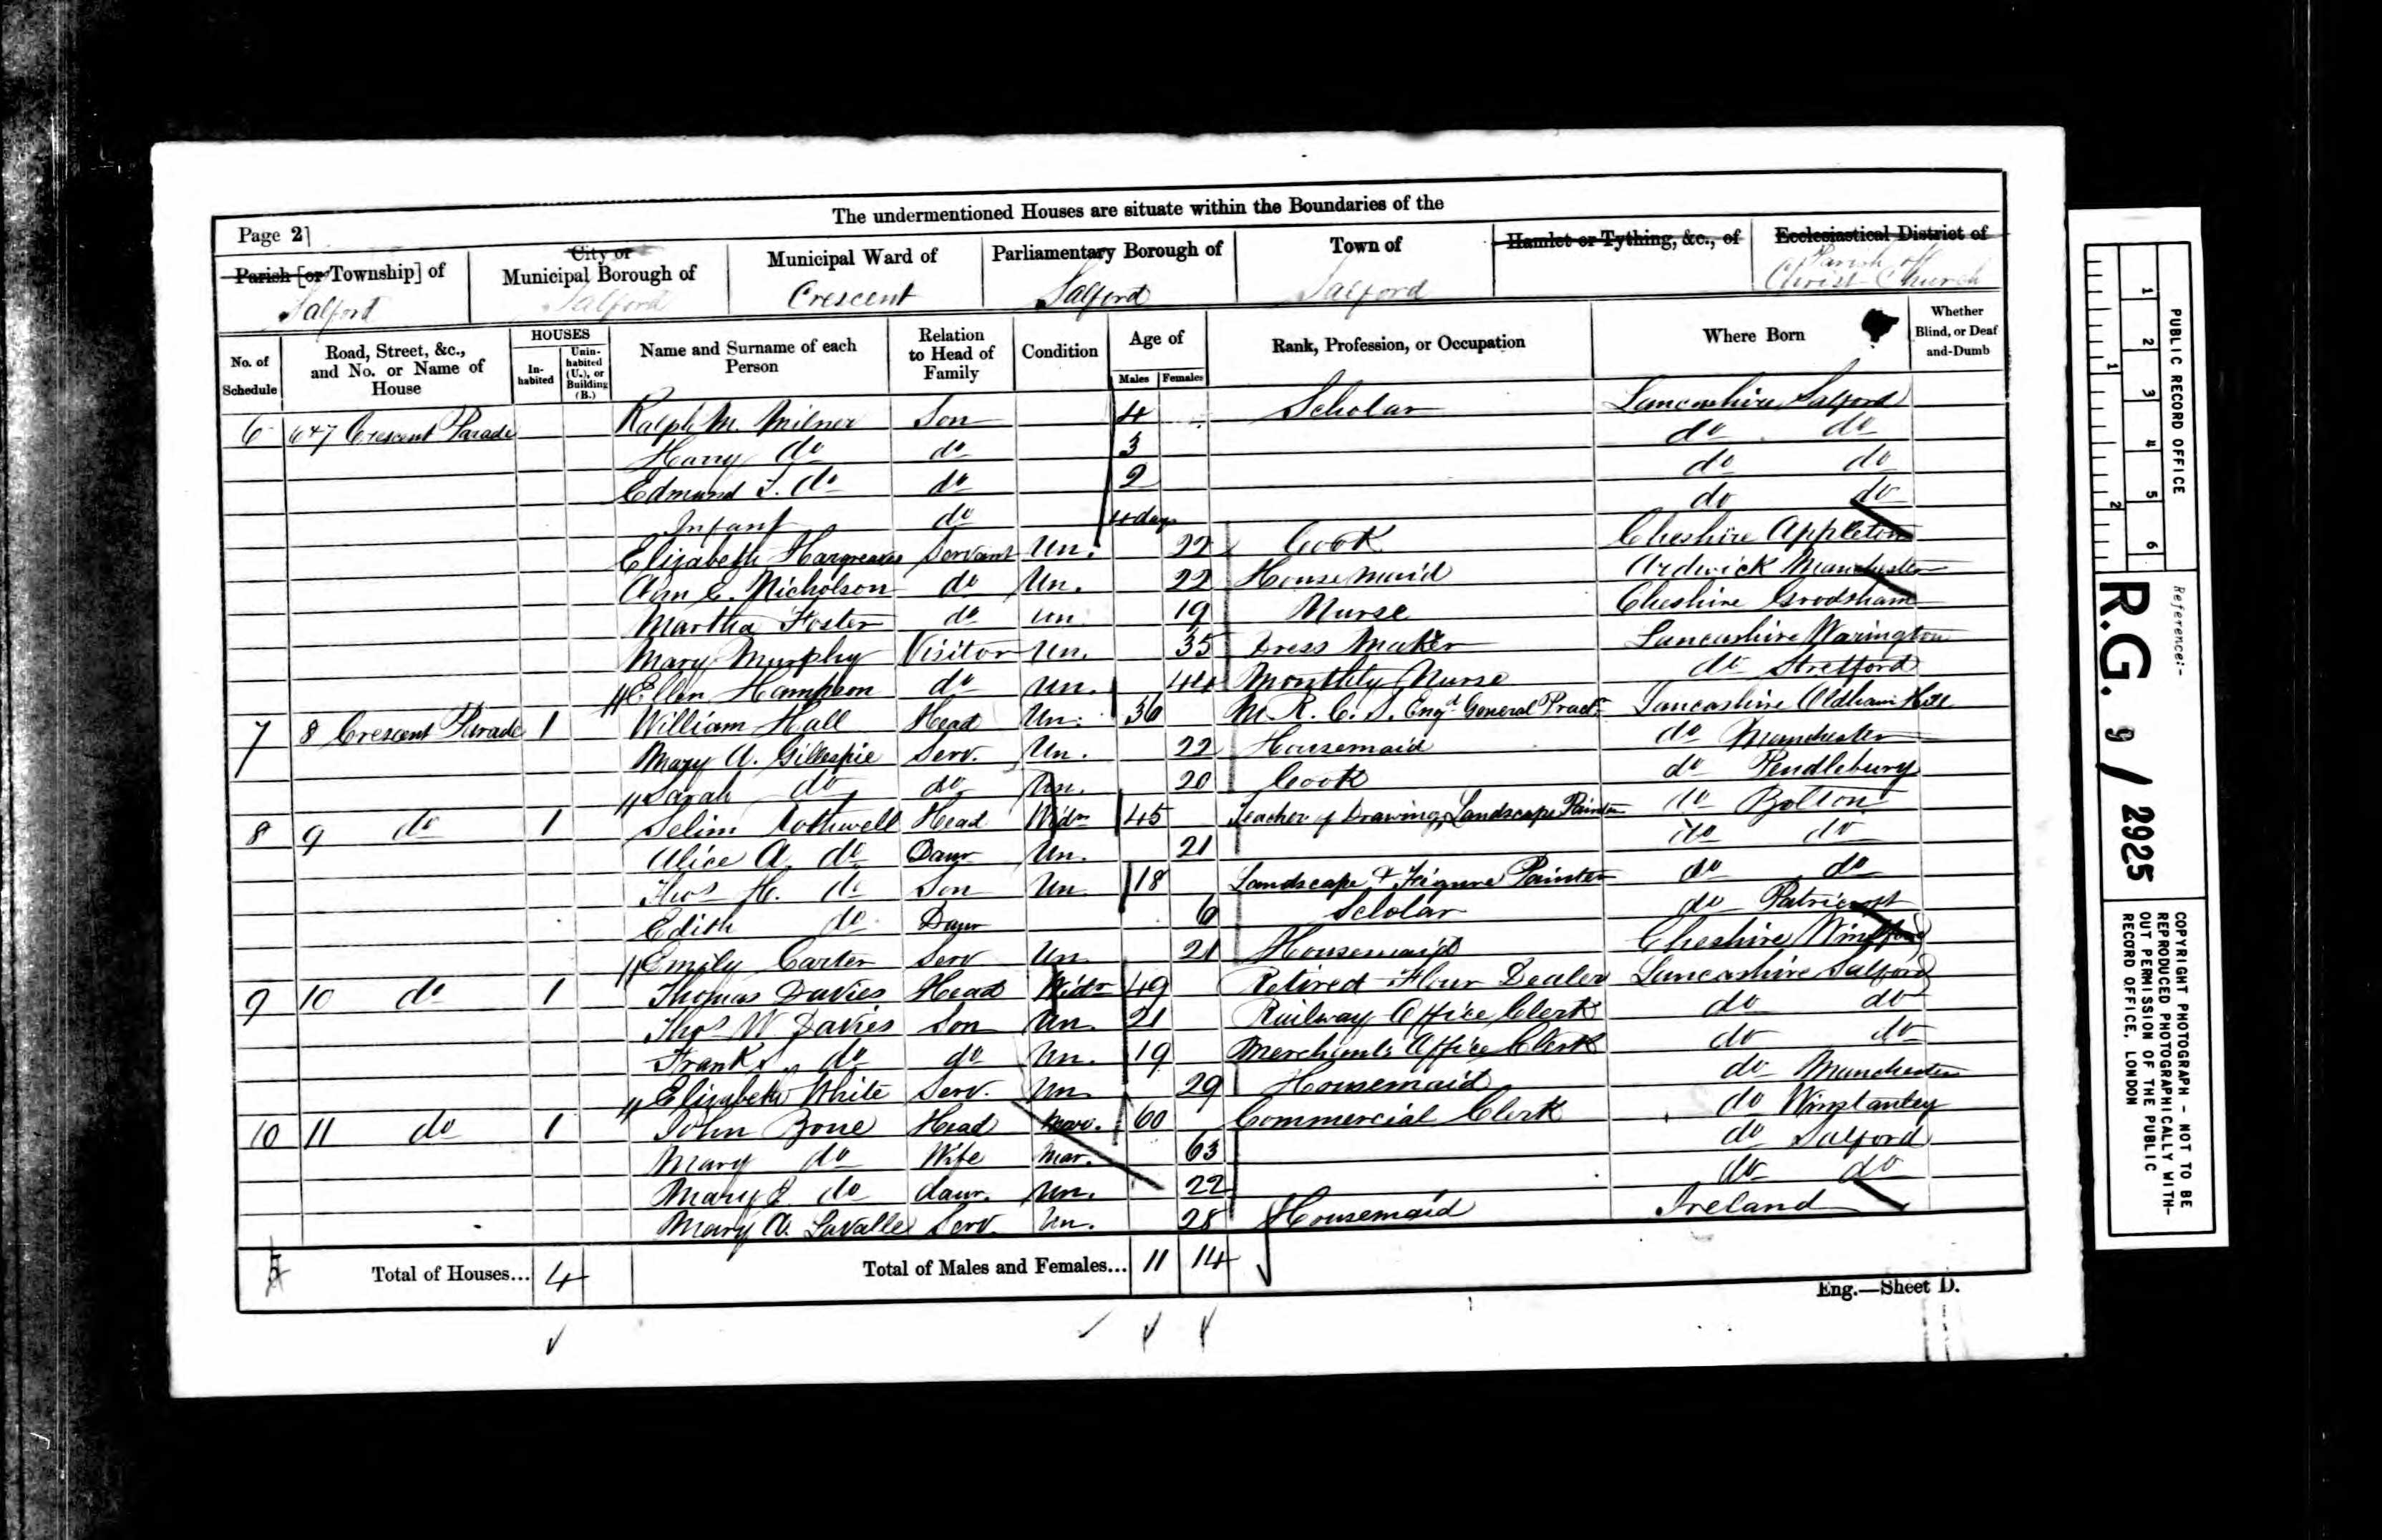 The undermentioned Houses are situate within the Boundaries of the
Page 21
Parish [or Township] of
Salford
City or
Municipal Borough of
Salford
Municipal Ward of
Crescent
Parliamentary Borough of
Salford
Town of
Salford
Hamlet or Tything, &c., of
Ecclesiastical District of
Parish of
Christ Church
No. of Schedule
Road, Street, &c., and No. or Name of House
HOUSES
In-habited
Unin-habited (U.), or Building (B.)
Name and Surname of each Person
Relation to Head of Family
Condition
Age of
Males Females
Rank, Profession, or Occupation
Where Born
Whether Blind, or Deaf and-Dumb
6 6&7 Crescent Parade Ralph M. Milner Son 4 Scholar Lancashire Salford
Harry do do 3 do do
Edmund do do 2 do do
Infant do 4 days do do
Elizabeth Hargreaves Servant Un. 22 Cook Cheshire Appleton
Ann E. Nicholson do Un. 22 Housemaid Ardwick Manchester
Martha Foster do Un 19 Nurse Cheshire Frodsham
Mary Murphy Visitor Un. 35 Dress Maker Lancashire Warington
Ellen Hampson do Un. 44 Monthly Nurse do Stretford
7 8 Crescent Parade 1 William Hall Head Un. 36 M.R.C.S. Engd General Pract. Lancashire Oldham
Mary A. Gillespie Serv. Un. 22 Housemaid do Manchester
Sarah do do Un. 20 Cook do Pendlebury
8 9 do 1 Selim Rothwell Head Widr 45 Teacher of Drawing, Landscape Painter do Bolton
Alice A do Daur Un. 21 do do
Thos H. do Son Un 18 Landscape & Figure Painter do do
Edith do Daur 6 Scholar do Patricroft
Emily Carter Serv Un 21 Housemaid Cheshire Winsford
9 10 do 1 Thomas Davies Head Widr 49 Retired Flour Dealer Lancashire Salford
Thos W Davies Son Un. 21 Railway Office Clerk do do
Frank do do Un. 19 Merchants Office Clerk do do
Elizabeth White Serv. Un 29 Housemaid do Manchester
10 11 do 1 John Bone Head Mar. 60 Commercial Clerk do Winstanley
Mary do Wife Mar. 63 do Salford
Mary E do daur. Un. 22 do do
Mary A. Lavalle Serv. Un. 28 Housemaid Ireland
Total of Houses... 4
Total of Males and Females... 11 14
Eng.—Sheet D.
PUBLIC RECORD OFFICE
1 2 3 4 5 6
1 2
Reference:-
R.G. 9 / 2925
COPYRIGHT PHOTOGRAPH - NOT TO BE
REPRODUCED PHOTOGRAPHICALLY WITH-
OUT PERMISSION OF THE PUBLIC
RECORD OFFICE, LONDON